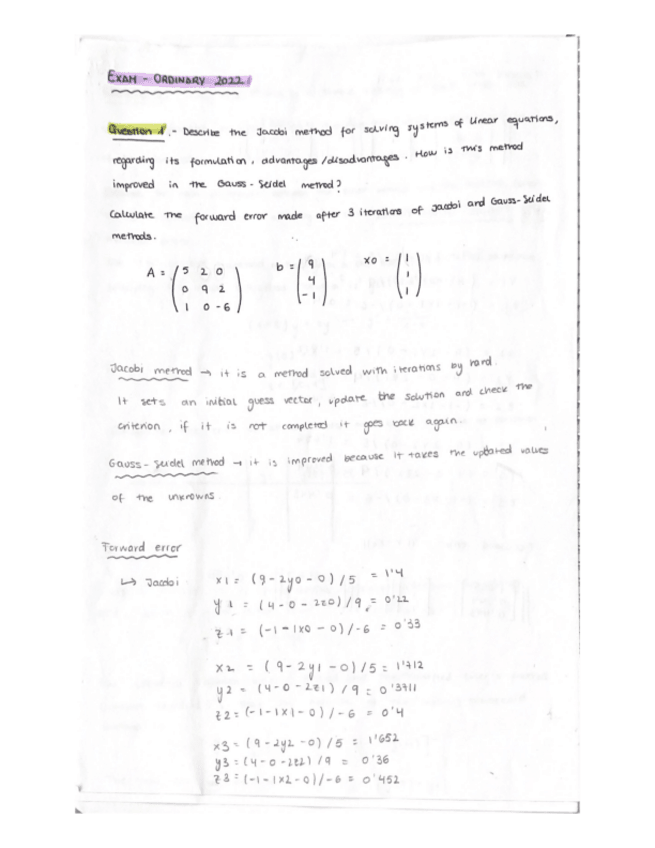 EXAM - ORDINARY 2022
Question 1.- Describe the Jacobi method for solving systems of linear equations,
regarding its formulation, advantages/disadvantages. How is this method
improved in the Gauss-Seidel method?
Calculate the forward error made after 3 iterations of Jacobi and Gauss-Seidel
methods.
A = (5 2 0 b = (9 x0 = (1
0 9 2 4 1
1 0 -6) -1) 1)
Jacobi method → it is a method solved with iterations by hand.
It sets an initial guess vector, update the solution and check the
criterion, if it is not completed it goes back again.
Gauss-Seidel method → it is improved because it takes the updated values
of the unknowns.
Forward error
↳ Jacobi x1 = (9-2y0-0)/5 = 1'4
y1 = (4-0-2z0)/9 = 0'22
z1 = (-1-1x0-0)/-6 = 0'33
x2 = (9-2y1-0)/5 = 1'712
y2 = (4-0-2z1)/9 = 0'3711
z2 = (-1-1x1-0)/-6 = 0'4
x3 = (9-2y2-0)/5 = 1'652
y3 = (4-0-2z2)/9 = 0'36
z3 = (-1-1x2-0)/-6 = 0'452